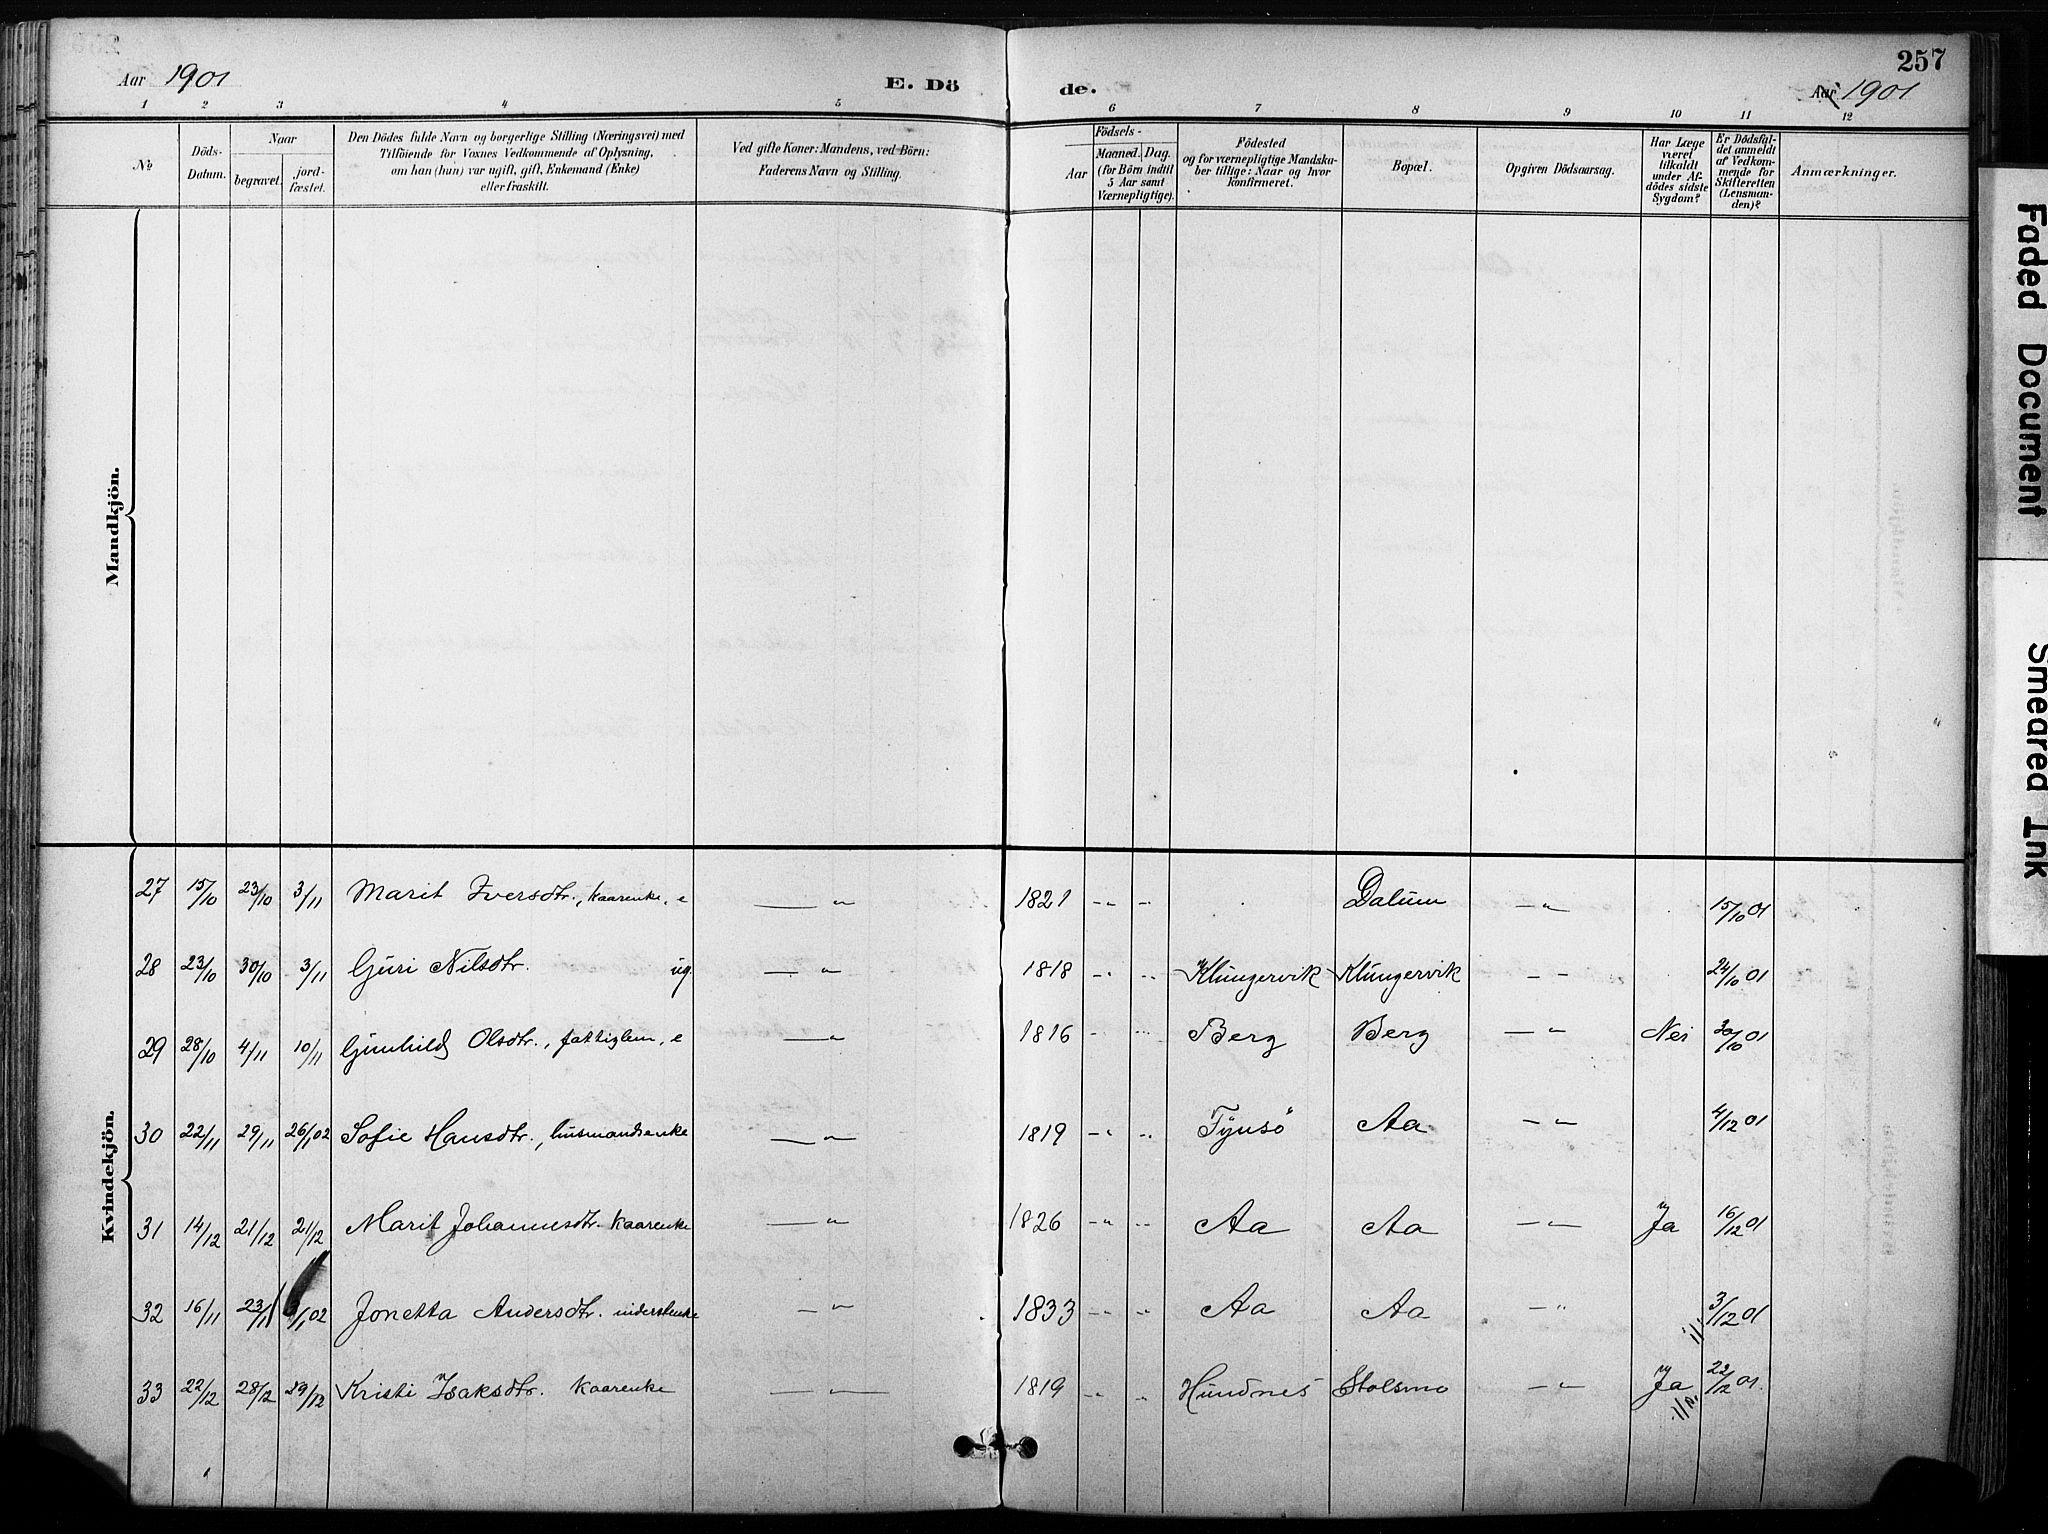 257
Aar 1901
E. Dö
de.
Aar 1901
1 2 3 4 5 6 7 8 9 10 11 12
No
Döds-Datum.
Naar
begravet.
jord-fæstet.
Den Dödes fulde Navn og borgerlige Stilling (Næringsvei) med
Tilföiende for Voxnes Vedkommende af Oplysning,
om han (hun) var ugift, gift, Enkemand (Enke)
eller fraskilt.
Ved gifte Koner: Mandens, ved Börn:
Faderens Navn og Stilling.
Födsels-
Aar
Maaned. Dag.
(for Börn indtil
5 Aar samt
Værnepligtige).
Födested
og for værnepligtige Mandska-
ber tillige: Naar og hvor
konfirmeret.
Bopæl.
Opgiven Dödsaarsag.
Har Læge
været
tilkaldt
under Af-
dödes sidste
Sygdom?
Er Dödsfal-
det anmeldt
af Vedkom-
mende for
Skifteretten
(Lensman-
den)?
Anmærkninger.
Mandkjön.
Kvindekjön.
27 15/10 23/10 3/11 Marit Iversdtr., kaarenke, e — " 1821 -"- -"- Dalum — " — 15/10 01
28 23/10 30/10 3/11 Guri Nilsdtr. ug. — " — 1818 -"- -"- Klungervik Klungervik — — 24/10 01
29 28/10 4/11 10/11 Gunhild Olsdtr., fattiglem, e — " 1816 -"- -"- Berg Berg — " — Nei 30/10 01
30 22/11 29/11 26/1 02 Sofie Hansdtr., husmandsenke — " — 1819 -"- -"- Tynsö Aa — " — 4/12 01
31 14/12 21/12 21/12 Marit Johannesdtr. kaarenke — " — 1826 -"- -"- Aa Aa — " — Ja 16/12 01
32 16/11 23/11 /1 02 Jonetta Andersdtr. inderstenke — " — 1833 -"- -"- Aa Aa — " — 3/12 01
33 22/12 28/12 29/12 Kristi Isaksdtr. kaarenke — " — 1819 -"- -"- Hundnes Stolsmo — " — Ja 22/12 01.
Faded Document
Smeared Ink